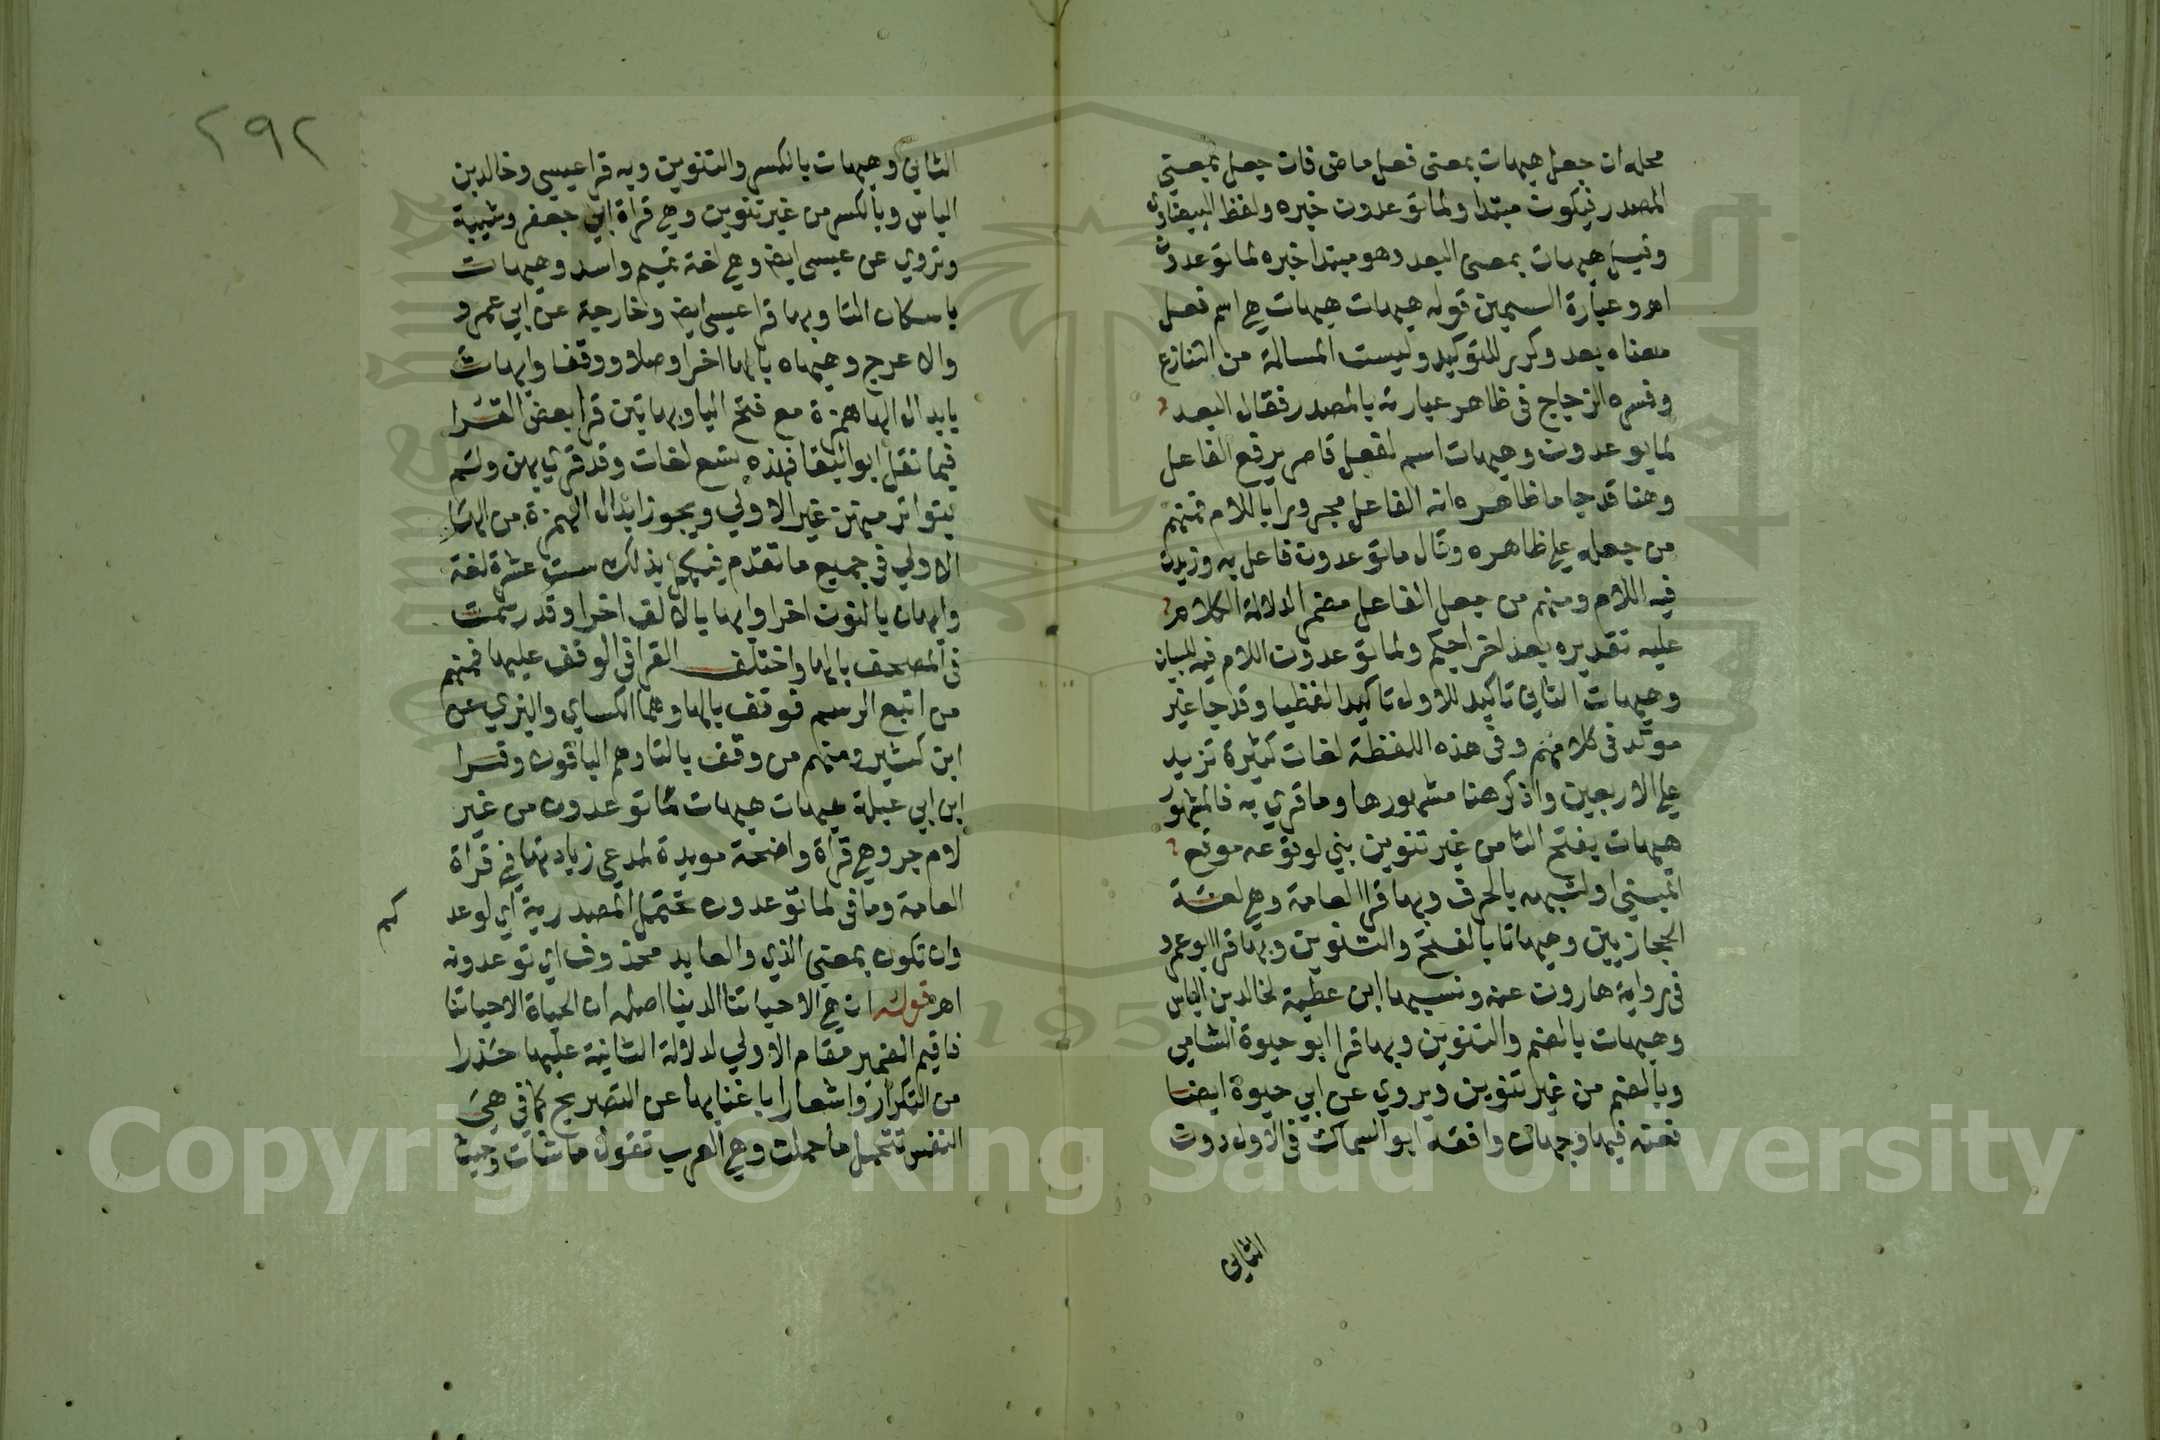 محله ان جعل هيهات بمعنى فعل ماضى فان جعل بمعنى
المصدر فيكون مبتدا ولما توعدون خبره ولفظ البيضاوى
وقيل هيهات بمعنى البعد وهو مبتدا خبره لما توعدون
اهـ وعبارة السمين قوله هيهات هيهات هي اسم فعل
معناه بعد وكرر للتوكيد وليست المسالة من التنازع
وفسره الزجاج فى ظاهر عبارته بالمصدر فقال البعد
لما يوعدون وهيهات اسم لفعل قاصر يرفع الفاعل
وهنا قد جا ما ظاهره ان الفاعل مجرورا باللام فمنهم
من جعله على ظاهره وقال ما توعدون فاعل به وزيدت
فيه اللام ومنهم من جعل الفاعل مضمرا لدلالة الكلام
عليه تقديره بعد اخراجكم ولما توعدون اللام فيه للبيان
وهيهات الثاني تاكيد للاول تاكيدا لفظيا وقد جا غير
موكد فى كلامهم وفى هذه اللفظة لغات كثيرة تزيد
على الاربعين واذكر هنا مشهورها وما قري به فالمشهور
هيهات بفتح التا من غير تنوين بني لوقوعه موقع
المبني او لشبهه بالحرف وبها قرا العامة وهي لغة
الحجازيين وهيهاتا بالفتح والتنوين وبها قرا ابوعمرو
فى رواية هارون عنه ونسبها ابن عطية لخالد بن الياس
وهيهات بالضم والتنوين وبها قرا ابو حيوة الشامي
وبالضم من غير تنوين ويروي عن ابي حيوة ايضا
فعنه فيها وجهان وافقه ابو السماك فى الاول دون
الثاني
٢٩٢
الثاني وهيهات بالكسر والتنوين وبه قرا عيسى وخالد بن
الياس وبالكسر من غير تنوين وهي قراة ابي جعفر وشيبة
وتروي عن عيسى ايضا وهي لغة تميم واسد وهيهات
باسكان التا وبها قرا عيسى ايضا وخارجة عن ابي عمرو
والاعرج وهيهاه بالها اخرا وصلا ووقفا وايهات
بابدال الها همزة مع فتح التا وبهاتين قرا بعض القرا
فيما نقل ابو البقا فهذه تسع لغات وقد قري بهن ولم
يتواتر منهن غير الاولي ويجوز ابدال الهمزة من الها
الاولي في جميع ما تقدم فيكمل بذلك ست عشرة لغة
وايهان بالنون اخرا وايها بالالف اخرا وقد رسمت
فى المصحف بالها واختلف القرا فى الوقف عليها فمنهم
من اتبع الرسم فوقف بالها وهما الكساي والبزي عن
ابن كثير ومنهم من وقف بالتا وهم الباقون وقرا
ابن ابي عبلة هيهات هيهات ما توعدون من غير
لام جر وهي قراة واضحة مويدة لمدعي زيادتها في قراة
العامة وما فى لما توعدون تحتمل المصدرية اي لوعدكم
وان تكون بمعنى الذي والعايد محذوف اي توعدونه
اهـ قوله ان هي الا حياتنا الدنيا اصله ان الحياة الا حياتنا
فاقيم الضمير مقام الاولي لدلالة الثانية عليها حذرا
من التكرار واشعارا باغنايها عن التصريح كما في هي
النفس تتحمل ما حملت وهي العرب تقول ما شات وحيث
Copyright © King Saud University
195